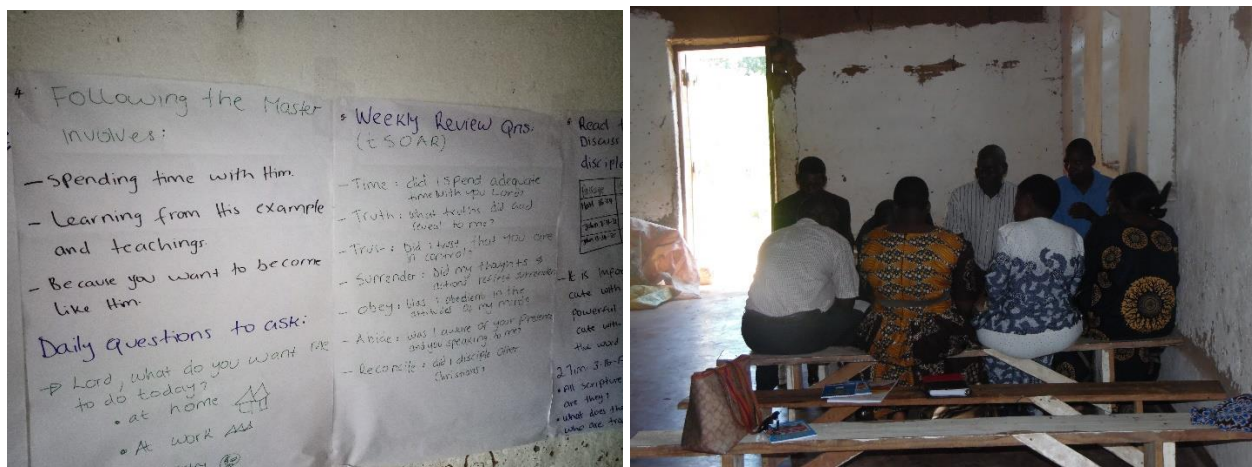 4 Following the Master
involves:
- Spending time with Him.
- Learning from His example
and teachings.
- Because you want to become
like Him.
Daily questions to ask:
→ Lord, what do you want me
to do today?
• at home
• At work
5 Weekly Review Qns.
(iSOAR)
- Time: did i spend adequate
time with you Lord?
- Truth: What truths did God
reveal to me?
- Trust: Did i trust that you are
in control?
- Surrender: Did my thoughts &
actions reflect surrender
- Obey: Was i obedient in the
of my mind?
- Abide: Was I aware of your Presence
and you speaking to me?
- Reconcile: did i disciple other
Christians?
Read
Discuss
discipl
- It is impo
cate with
powerful
cate with
the word
2 Tim. 3:
• All scripture
are they?
• What does th
who are tra